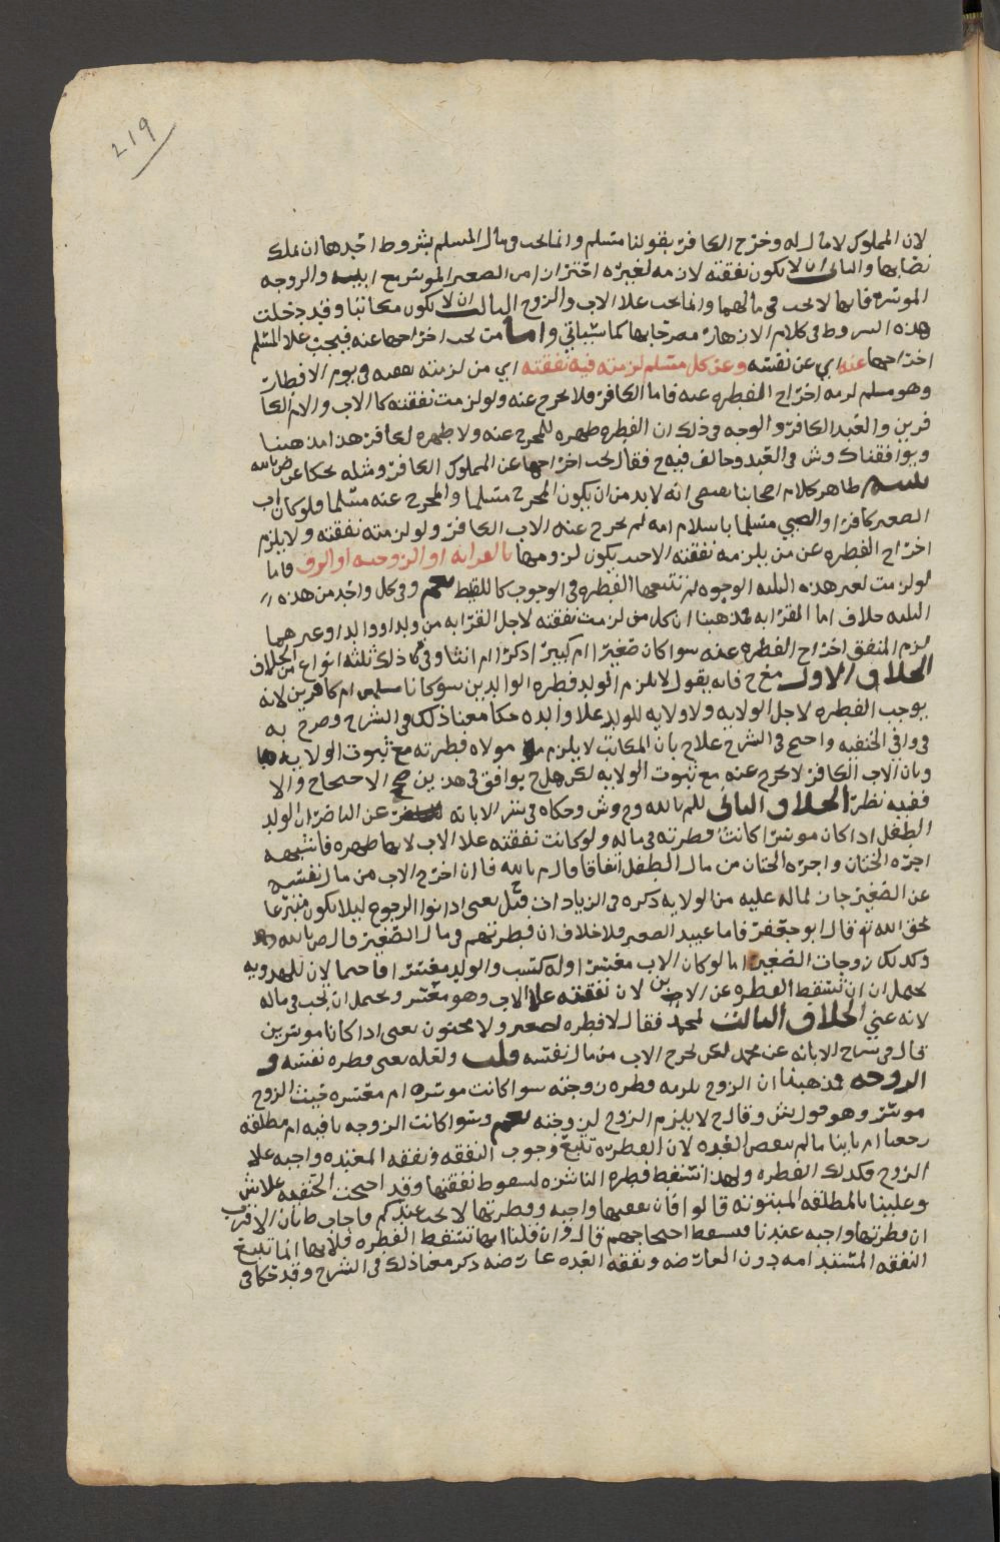 219
لان المملوك لا مال له وخرج الكافر بقولنا مسلم وانما تجب في مال المسلم بشروط احدها ان يملك
نصابها والثاني ان لا يكون نفقته لازمه لغيره احترازا من الصغير الموسر مع ابيه والزوجه
الموسره فانها لا تجب في مالهما وانما تجب علا الاب والزوج الثالث ان لا يكون مكاتبا وقد دخلت
هذه الشروط في كلام الازهار مصرحا بها كما سياتي واما من تجب اخراجها عنه فيجب علا المسلم
اخراجها عنه اي عن نفسه وعن كل مسلم لزمته فيه نفقته اي من لزمته نفقته في يوم الافطار
وهو مسلم لزمه اخراج الفطره عنه فاما الكافر فلا يخرج عنه ولو لزمت نفقته كالاب والام الكا
فرين والعبد الكافر والوجه في ذلك ان الفطره طهره للمخرج عنه ولا طهره لكافر هذا مذهبنا
ويوافقنا ك وش في العبد وخالف فيه ح فقال يجب اخراجها عن المملوك الكافر ومثله يحكا عن ص بالله
ظاهر كلام اصحابنا يقضي انه لا بد من ان يكون المخرج مسلما والمخرج عنه مسلما فلو كان اب
الصغير كافرا والصبي مسلما باسلام امه لم يخرج عنه الاب الكافر ولو لزمته نفقته ولا يلزم
اخراج الفطره عن من يلزمه نفقته الا حيث يكون لزومها بالقرابه او الزوجيه او الرق فاما
لو لزمت لغير هذه الثلثه الوجوه لم تتبعها الفطره في الوجوب كاللقيط نعم وفي كل واحد من هذه
الثلثه خلاف اما القرابه فمذهبنا ان كل من لزمت نفقته لاجل القرابه من ولد او والد او غيرهما
لزم المنفق اخراج الفطره عنه سوا كان صغيرا ام كبيرا ذكرا ام انثا وفي ذلك ثلثه انواع من الخلاف
الخلاف الاول مع ح فانه يقول لا يلزم الولد فطره الوالدين سوا كانا مسلمين ام كافرين لانه
يوجب الفطره لاجل الولايه ولا ولايه للولد علا والده حكا معنا ذلك في الشرح وصرح به
في وافي الحنفيه واحتج في الشرح علا ح بان المكاتب لا يلزم مولاه فطرته مع ثبوت الولايه
وبان الاب الكافر لا يخرج عنه مع ثبوت الولايه لكن هل ح يوافق في هذين صح الاحتجاج والا
ففيه نظر الخلاف الثاني للم بالله وح وش وحكاه في شرح الابانه عن الناصر ان الولد
الطفل اذا كان موسرا كانت فطرته في ماله ولو كانت نفقته علا الاب لانها طهره فاشبهت
اجره الختان واجره الختان من مال الطفل اتفاقا قال م بالله فان اخرج الاب من مال نفسه
عن الصغير جاز لما له عليه من الولايه ذكره في الزيادات قيل يعني اذا نوا الرجوع ليلا يكون متبرعا
بحق الله قال ابو جعفر فاما عبيد الصغير فلا خلاف ان فطرتهم في مال الصغير قال ص بالله
وكذلك زوجات الصغير اما لو كان الاب معسرا وله كسب والولد معسرا فاحتمالان للهدويه
يحتمل ان تسقط الفطره عن الابن لان نفقته علا الاب وهو معسر ويحتمل ان تجب في ماله
لانه غني الخلاف الثالث لمحمد فقال لا فطره لصغير ولا مجنون يعني اذا كانا موسرين
قال في شرح الابانه عن محمد لكن يخرج الاب من مال نفسه قلت ولعله يعني فطره نفسه و
الزوجه فمذهبنا ان الزوج يلزمه فطره زوجته سوا كانت موسره ام معسره حيث الزوج
موسر وهو قول ش وقال ح لا يلزم الزوج لزوجته نعم وسوا كانت الزوجه باقيه ام مطلقه
رجعيا ام باينا ما لم تنقض العده لان الفطره تتبع وجوب النفقه ونفقه المعتده واجبه علا
الزوج فكذلك الفطره ولهذا تسقط فطره الناشزه لسقوط نفقتها وقد احتجت الحنفيه علا ش
وعلينا بالمطلقه المبتوته قالوا فان نفقتها واجبه وفطرتها لا تجب عندكم فاجاب ط بان الاقرب
ان فطرتها واجبه عندنا فسقط احتجاجهم قال وان قلنا انها تسقط الفطره فلانها انما تتبع
النفقه المستدامه دون العارضه ونفقه العده عارضه ذكر معنا ذلك في الشرح وقد حكا في